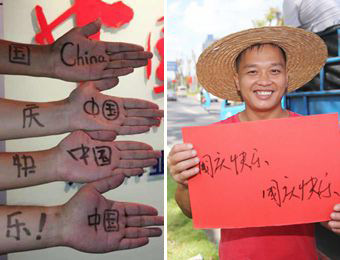 国 China
庆 中国
快 中国
乐! 中国
国庆快乐、
国庆快乐、